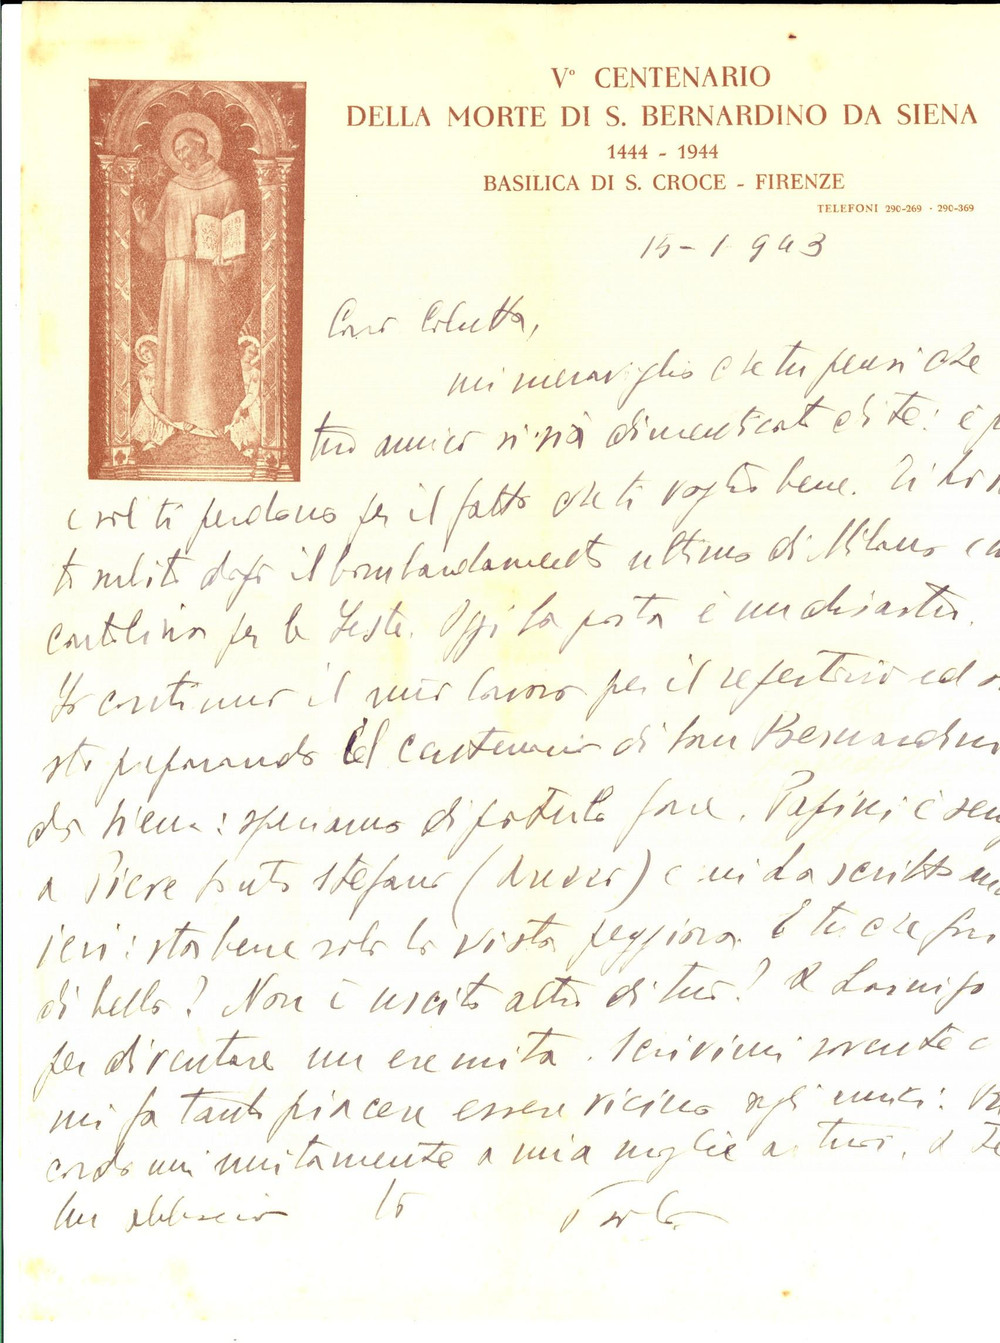 Vº CENTENARIO
DELLA MORTE DI S. BERNARDINO DA SIENA
1444 - 1944
BASILICA DI S. CROCE - FIRENZE
TELEFONI 290-269 - 290-369
15-1-943
Caro
mi meraviglio che tu pensi che
tuo amico si sia dimenticato di te: è
e sol ti perdono per il fatto che ti voglio bene. Ti ho
ti subito dopo il bombardamento ultimo di Milano
cartolina per le feste. Oggi la posta è un disastro.
Io continuo il mio lavoro per il refettorio ed
sto preparando il centenario di San Bernardino
da Siena: speriamo di poterlo fare. Papini è
a Pieve Santo Stefano (Arezzo) e mi ha scritto
ieri: sta bene solo la vista peggiora. E tu che fai
di bello? Non è uscito altro di tuo?
per diventare un eremita. Scrivimi sovente e
mi fa tanto piacere essere vicino agli amici:
cordami unitamente a mia moglie ai tuoi, a te
un abbraccio